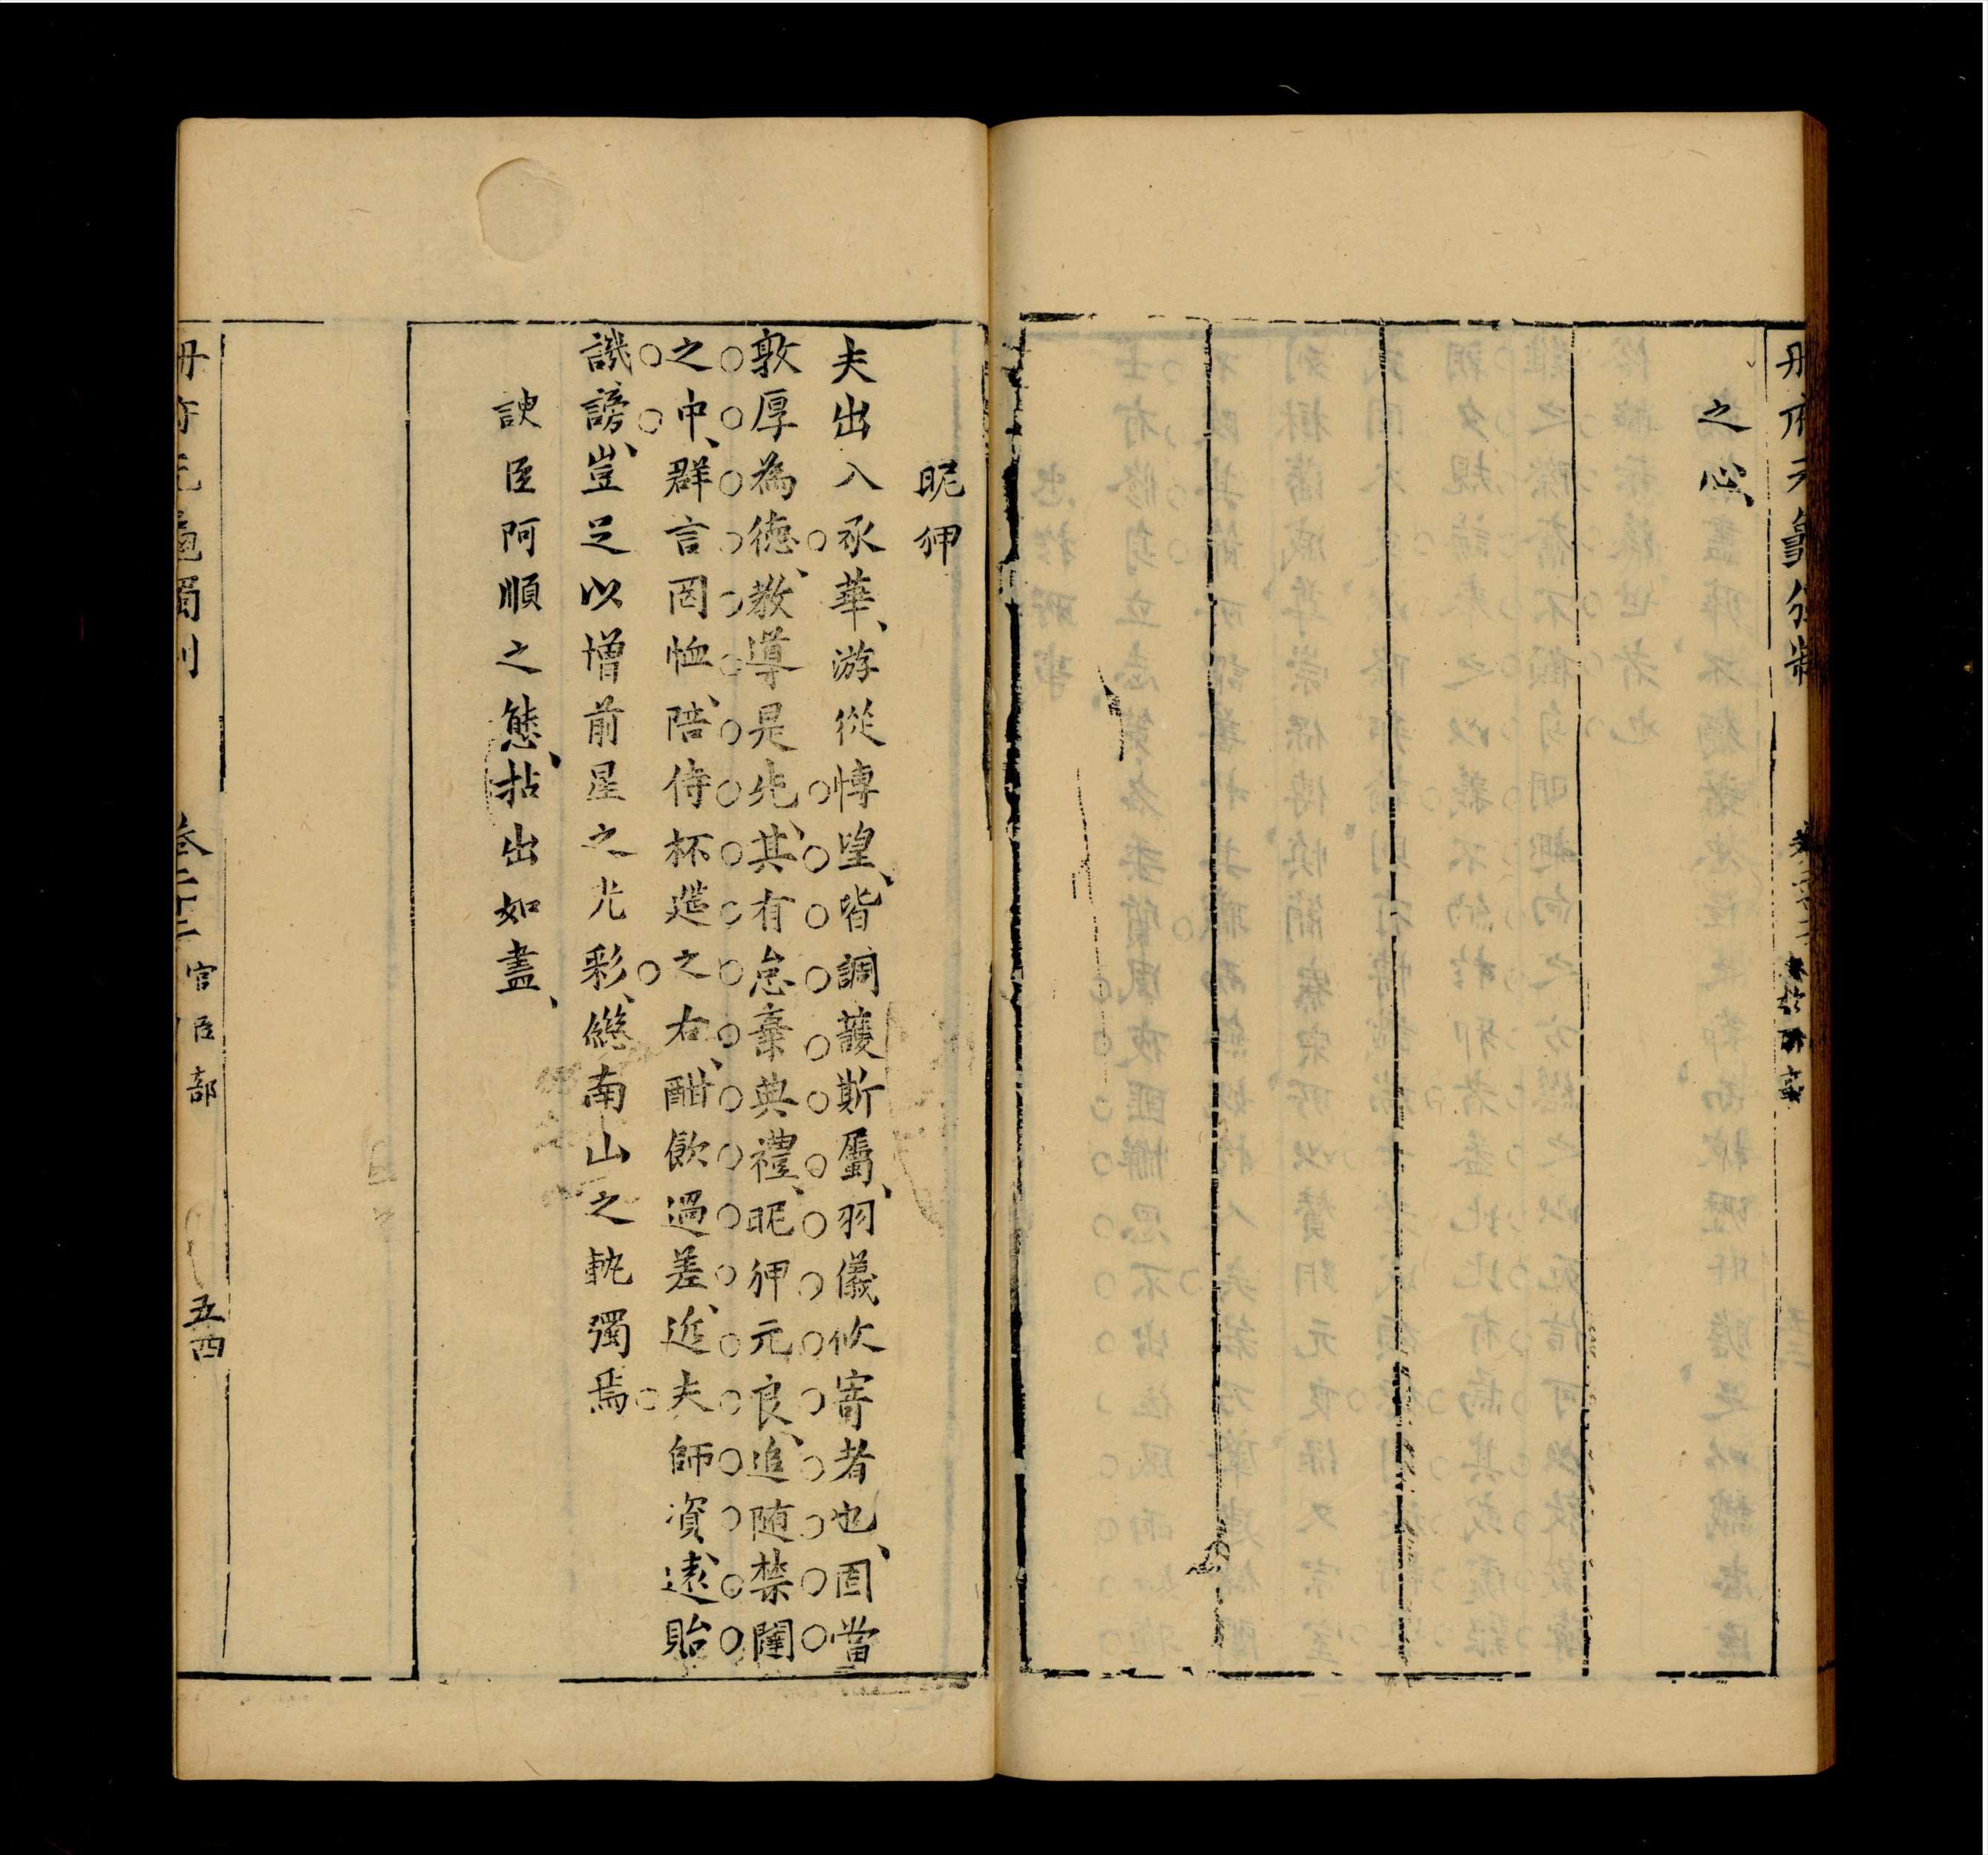 之心
昵狎
夫出入承華游從博望皆調護斯屬羽儀攸寄者也固當
敦厚為德教導是先其有怠棄典禮昵狎元良追随禁闥
之中群言罔恤陪侍杯遰之右酣飲過差近夫師資遠貽
譏謗豈足以增前星之光彩繼南山之執獨焉
諛臣阿順之態拈出如畫
冊府元龜獨制
卷二十二 官臣部
五四